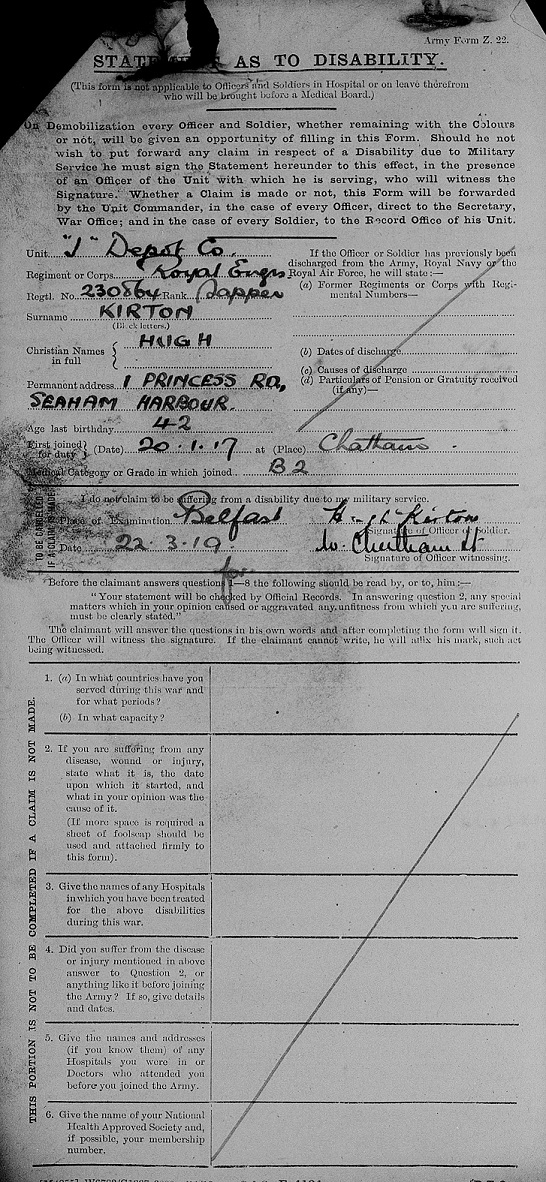 Army Form Z. 22.
AS TO DISABILITY.
(This form is not applicable to Officers and Soldiers in Hospital or on leave therefrom
who will be brought before a Medical Board.)
On Demobilization every Officer and Soldier, whether remaining with the Colours
or not, will be given an opportunity of filling in this Form. Should he not
wish to put forward any claim in respect of a Disability due to Military
Service he must sign the Statement hereunder to this effect, in the presence
of an Officer of the Unit with which he is serving, who will witness the
Signature. Whether a Claim is made or not, this Form will be forwarded
by the Unit Commander, in the case of every Officer, direct to the Secretary,
War Office; and in the case of every Soldier, to the Record Office of his Unit.
Unit "J" Depot Co.
Regiment or Corps Royal Engrs
Regtl. No. 230864 Rank Sapper
Surname KIRTON
(Block letters.)
Christian Names in full HUGH
Permanent address 1 PRINCESS RD,
SEAHAM HARBOUR.
Age last birthday 42
If the Officer or Soldier has previously been
discharged from the Army, Royal Navy or the
Royal Air Force, he will state:—
(a) Former Regiments or Corps with Regi-
mental Numbers—
(b) Dates of discharge
(c) Causes of discharge
(d) Particulars of Pension or Gratuity received
(if any)—
First joined for duty (Date) 20.1.17 at (Place) Chatham.
Medical Category or Grade in which joined B2
I do not claim to be suffering from a disability due to my military service.
Place of Examination Belfast
Signature of Officer or Soldier.
Date 22.3.19.
Signature of Officer witnessing.
TO BE CANCELLED
IF A CLAIM IS MADE
for
Before the claimant answers questions 1—8 the following should be read by, or to, him:—
"Your statement will be checked by Official Records. In answering question 2, any special
matters which in your opinion caused or aggravated any unfitness from which you are suffering,
must be clearly stated."
The claimant will answer the questions in his own words and after completing the form will sign it.
The Officer will witness the signature. If the claimant cannot write, he will affix his mark, such act
being witnessed.
THIS PORTION IS NOT TO BE COMPLETED IF A CLAIM IS NOT MADE.
1. (a) In what countries have you
served during this war and
for what periods?
(b) In what capacity?
2. If you are suffering from any
disease, wound or injury,
state what it is, the date
upon which it started, and
what in your opinion was the
cause of it.
(If more space is required a
sheet of foolscap should be
used and attached firmly to
this form).
3. Give the names of any Hospitals
in which you have been treated
for the above disabilities
during this war.
4. Did you suffer from the disease
or injury mentioned in above
answer to Question 2, or
anything like it before joining
the Army? If so, give details
and dates.
5. Give the names and addresses
(if you know them) of any
Hospitals you were in or
Doctors who attended you
before you joined the Army.
6. Give the name of your National
Health Approved Society and,
if possible, your membership
number.